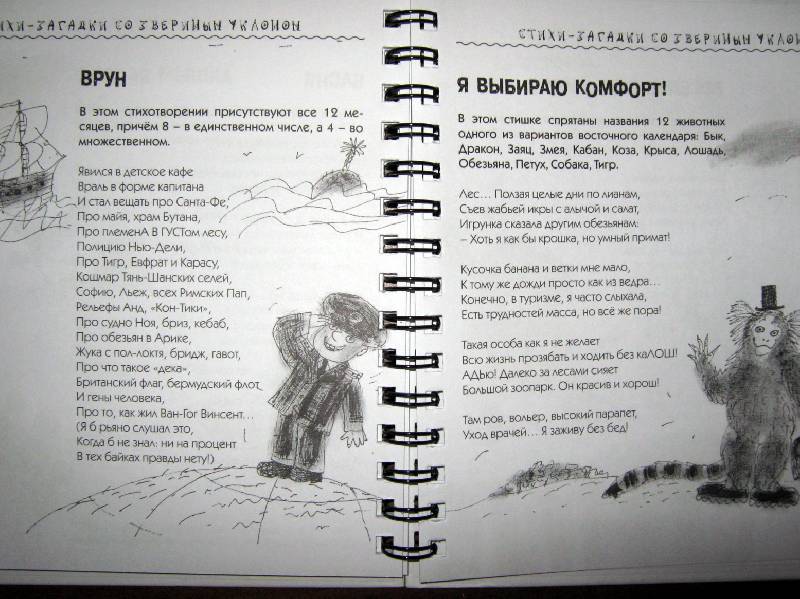 СТИХИ-ЗАГАДКИ СО ЗВЕРИНЫМ УКЛОНОМ
ВРУН
В этом стихотворении присутствуют все 12 ме-
сяцев, причём 8 – в единственном числе, а 4 – во
множественном.
Явился в детское кафе
Враль в форме капитана
И стал вещать про Санта-Фе,
Про майя, храм Бутана,
Про племенА В ГУСТом лесу,
Полицию Нью-Дели,
Про Тигр, Евфрат и Карасу,
Кошмар Тянь-Шанских селей,
Софию, Льеж, всех Римских Пап,
Рельефы Анд, «Кон-Тики»,
Про судно Ноя, бриз, кебаб,
Про обезьян в Арике,
Жука с пол-локтя, бридж, гавот,
Про что такое «дека»,
Британский флаг, бермудский флот
И гены человека,
Про то, как жил Ван-Гог Винсент...
(Я б рьяно слушал это,
Когда б не знал: ни на процент
В тех байках правды нету!)
СТИХИ-ЗАГАДКИ СО ЗВЕРИНЫМ УКЛОНОМ
Я ВЫБИРАЮ КОМФОРТ!
В этом стишке спрятаны названия 12 животных
одного из вариантов восточного календаря: Бык,
Дракон, Заяц, Змея, Кабан, Коза, Крыса, Лошадь,
Обезьяна, Петух, Собака, Тигр.
Лес... Ползая целые дни по лианам,
Съев жабьей икры с алычой и салат,
Игрунка сказала другим обезьянам:
– Хоть я как бы крошка, но умный примат!
Кусочка банана и ветки мне мало,
К тому же дожди просто как из ведра...
Конечно, в туризме, я часто слыхала,
Есть трудностей масса, но всё же пора!
Такая особа как я не желает
Всю жизнь прозябать и ходить без каЛОШ!
АДЬю! Далеко за лесами сияет
Большой зоопарк. Он красив и хорош!
Там ров, вольер, высокий парапет,
Уход врачей... Я заживу без бед!